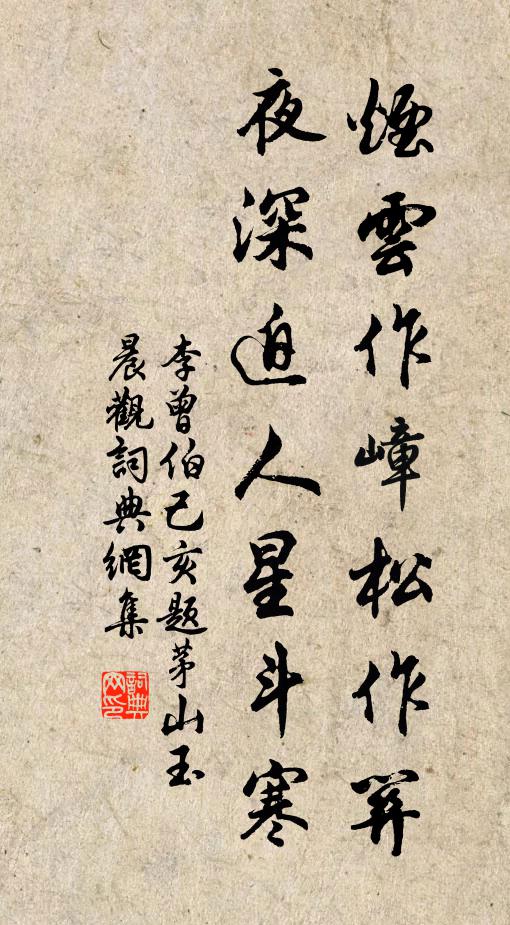 煙雲作嶂松作關
夜深迫人星斗寒
李曾伯己亥題茅山玉
晨觀詞典網集
詞典
网印